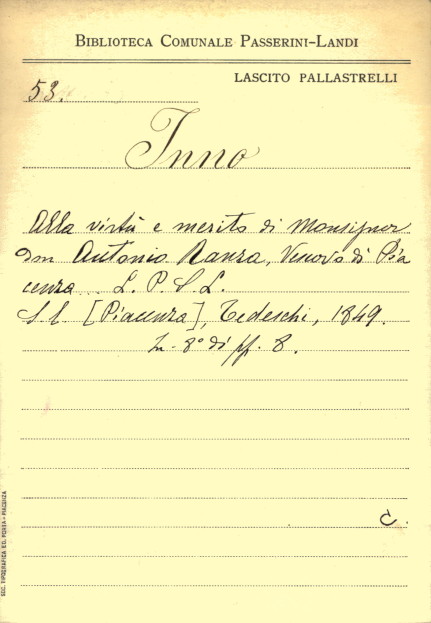 BIBLIOTECA COMUNALE PASSERINI-LANDI
LASCITO PALLASTRELLI
53.
Inno
Alla virtù e merito di Monsignor
Dn Antonio Ranza, Vescovo di Pia
cenza... L. P. S. L.
S. l. [Piacenza], Tedeschi, 1849.
In-8° di pp. 8.
C.
SOC. TIPOGRAFICA ED. PORTA - PIACENZA